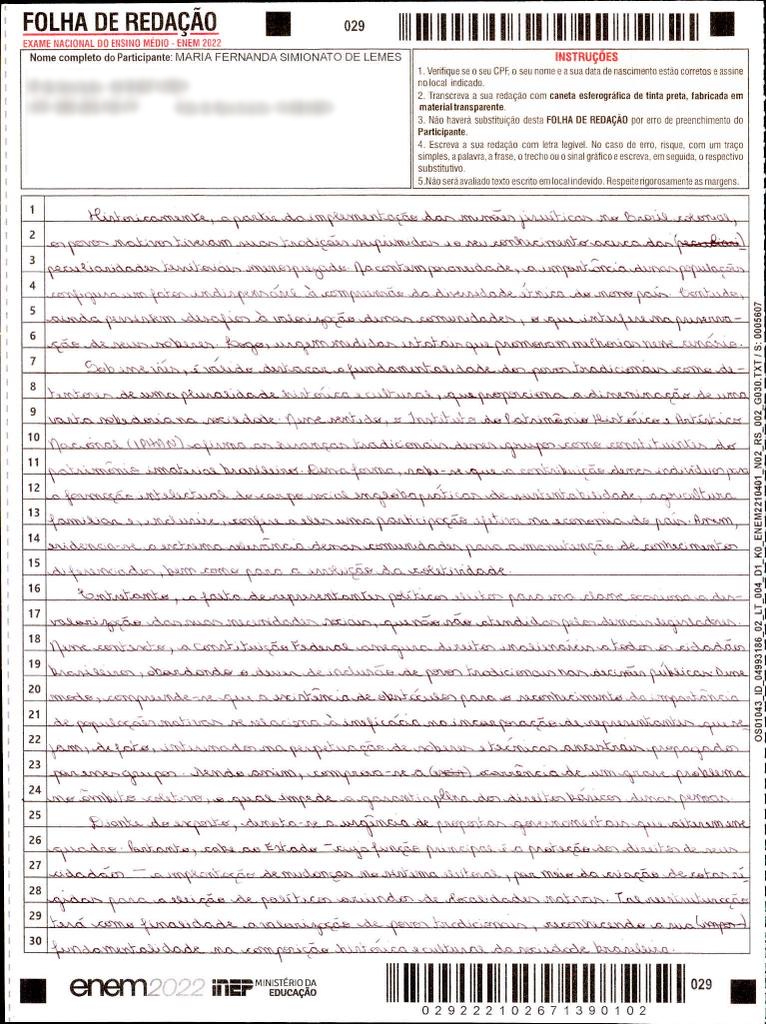 FOLHA DE REDAÇÃO
EXAME NACIONAL DO ENSINO MÉDIO - ENEM 2022
029
Nome completo do Participante: MARIA FERNANDA SIMIONATO DE LEMES
INSTRUÇÕES
1. Verifique se o seu CPF, o seu nome e a sua data de nascimento estão corretos e assine no local indicado.
2. Transcreva a sua redação com caneta esferográfica de tinta preta, fabricada em material transparente.
3. Não haverá substituição desta FOLHA DE REDAÇÃO por erro de preenchimento do Participante.
4. Escreva a sua redação com letra legível. No caso de erro, risque, com um traço simples, a palavra, a frase, o trecho ou o sinal gráfico e escreva, em seguida, o respectivo substitutivo.
5. Não será avaliado texto escrito em local indevido. Respeite rigorosamente as margens.
1 Historicamente, a partir da implementação das missões jesuíticas no Brasil colonial,
2 os povos nativos tiveram suas tradições suprimidas e o seu conhecimento acerca das
3 peculiaridades territoriais menosprezado. Na contemporaneidade, a importância dessas populações
4 configura um fator indispensável à compreensão da diversidade étnica do nosso país. Contudo,
5 ainda persistem desafios à valorização dessas comunidades, o que interfere na preserva-
6 ção de seus saberes. Logo, urgem medidas estatais que promovam melhorias nesse cenário.
7 Sob esse viés, é válido destacar a fundamentalidade dos povos tradicionais como de-
8 tentores de uma pluralidade histórica e cultural, que proporciona a disseminação de uma
9 vasta sabedoria na sociedade. Nesse sentido, o Instituto do Patrimônio Histórico e Artístico
10 Nacional (IPHAN) afirma as heranças tradicionais desses grupos como constituintes do
11 patrimônio imaterial brasileiro. Dessa forma, sabe-se que a contribuição desses indivíduos para
12 a formação intelectual do corpo social engloba práticas de sustentabilidade, agricultura
13 familiar e, inclusive, confere a eles uma participação efetiva na economia do país. Assim,
14 evidencia-se a extrema relevância dessas comunidades para a manutenção de conhecimentos
15 diferenciados, bem como para a evolução da coletividade.
16 Entretanto, a falta de representantes políticos eleitos para essa classe ocasiona a des-
17 valorização das suas necessidades sociais, que não são atendidas pelos demais legisladores.
18 Nesse contexto, a Constituição Federal assegura direitos inalienáveis a todos os cidadãos
19 brasileiros, abordando o dever de inclusão de povos tradicionais nas decisões públicas. Desse
20 modo, compreende-se que a existência de obstáculos para o reconhecimento da importância
21 de populações nativas se relaciona à ineficácia na incorporação de representantes que se-
22 jam, de fato, interessados na perpetuação de saberes e técnicas ancestrais propagados
23 por esses grupos. Sendo assim, comprova-se a ocorrência de um grave problema
24 no âmbito coletivo, o qual impede a garantia plena dos direitos básicos dessas pessoas.
25 Diante do exposto, denota-se a urgência de propostas governamentais que alterem esse
26 quadro. Portanto, cabe ao Estado – cuja função principal é a proteção dos direitos de seus
27 cidadãos – a implantação de mudanças no sistema eleitoral, por meio da criação de cotas rí-
28 gidas para a eleição de políticos oriundos de localidades nativas. Tal reestruturação
29 terá como finalidade a valorização de povos tradicionais, reconhecendo a sua (impor)
30 fundamentalidade na composição histórica e cultural da sociedade brasileira.
OS01043_ID_04993186_02_LT_004_D1_K0_ENEM2210401_N02_RS_002_G030.TXT / S: 0005607
enem2022 inep MINISTÉRIO DA EDUCAÇÃO
029
0292221026713 90102